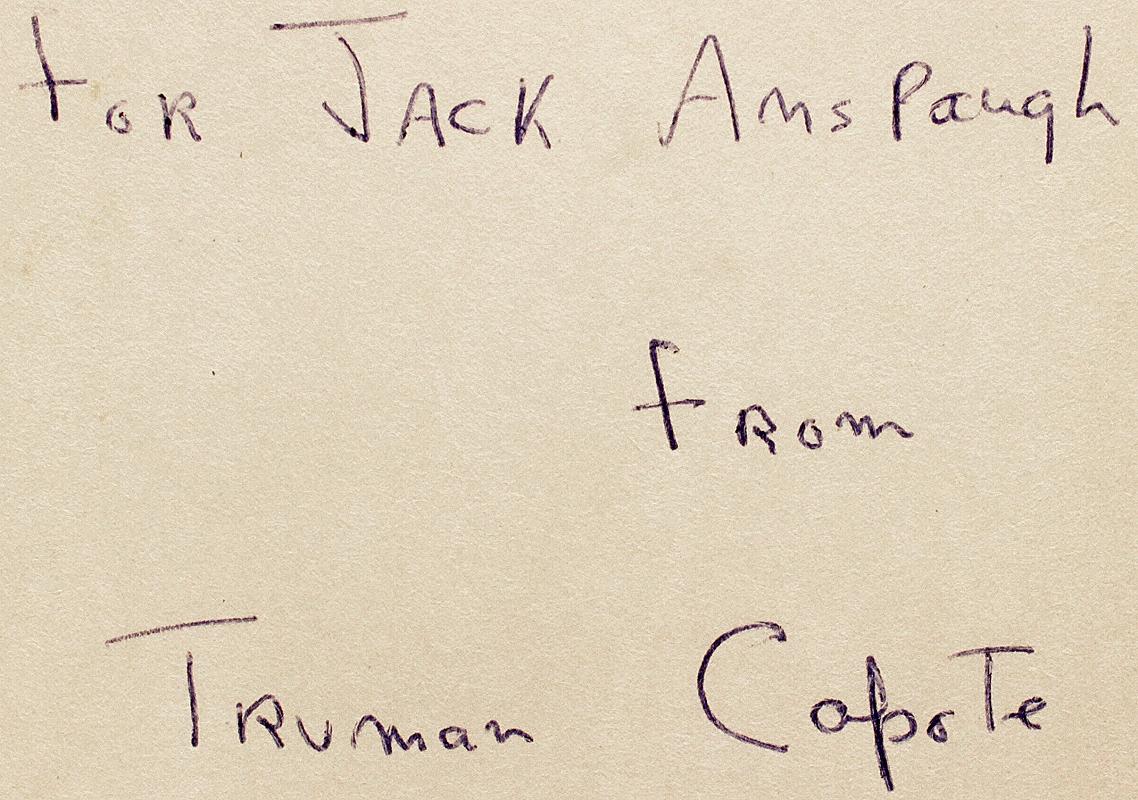 For Jack Anspaugh
from
Truman Capote